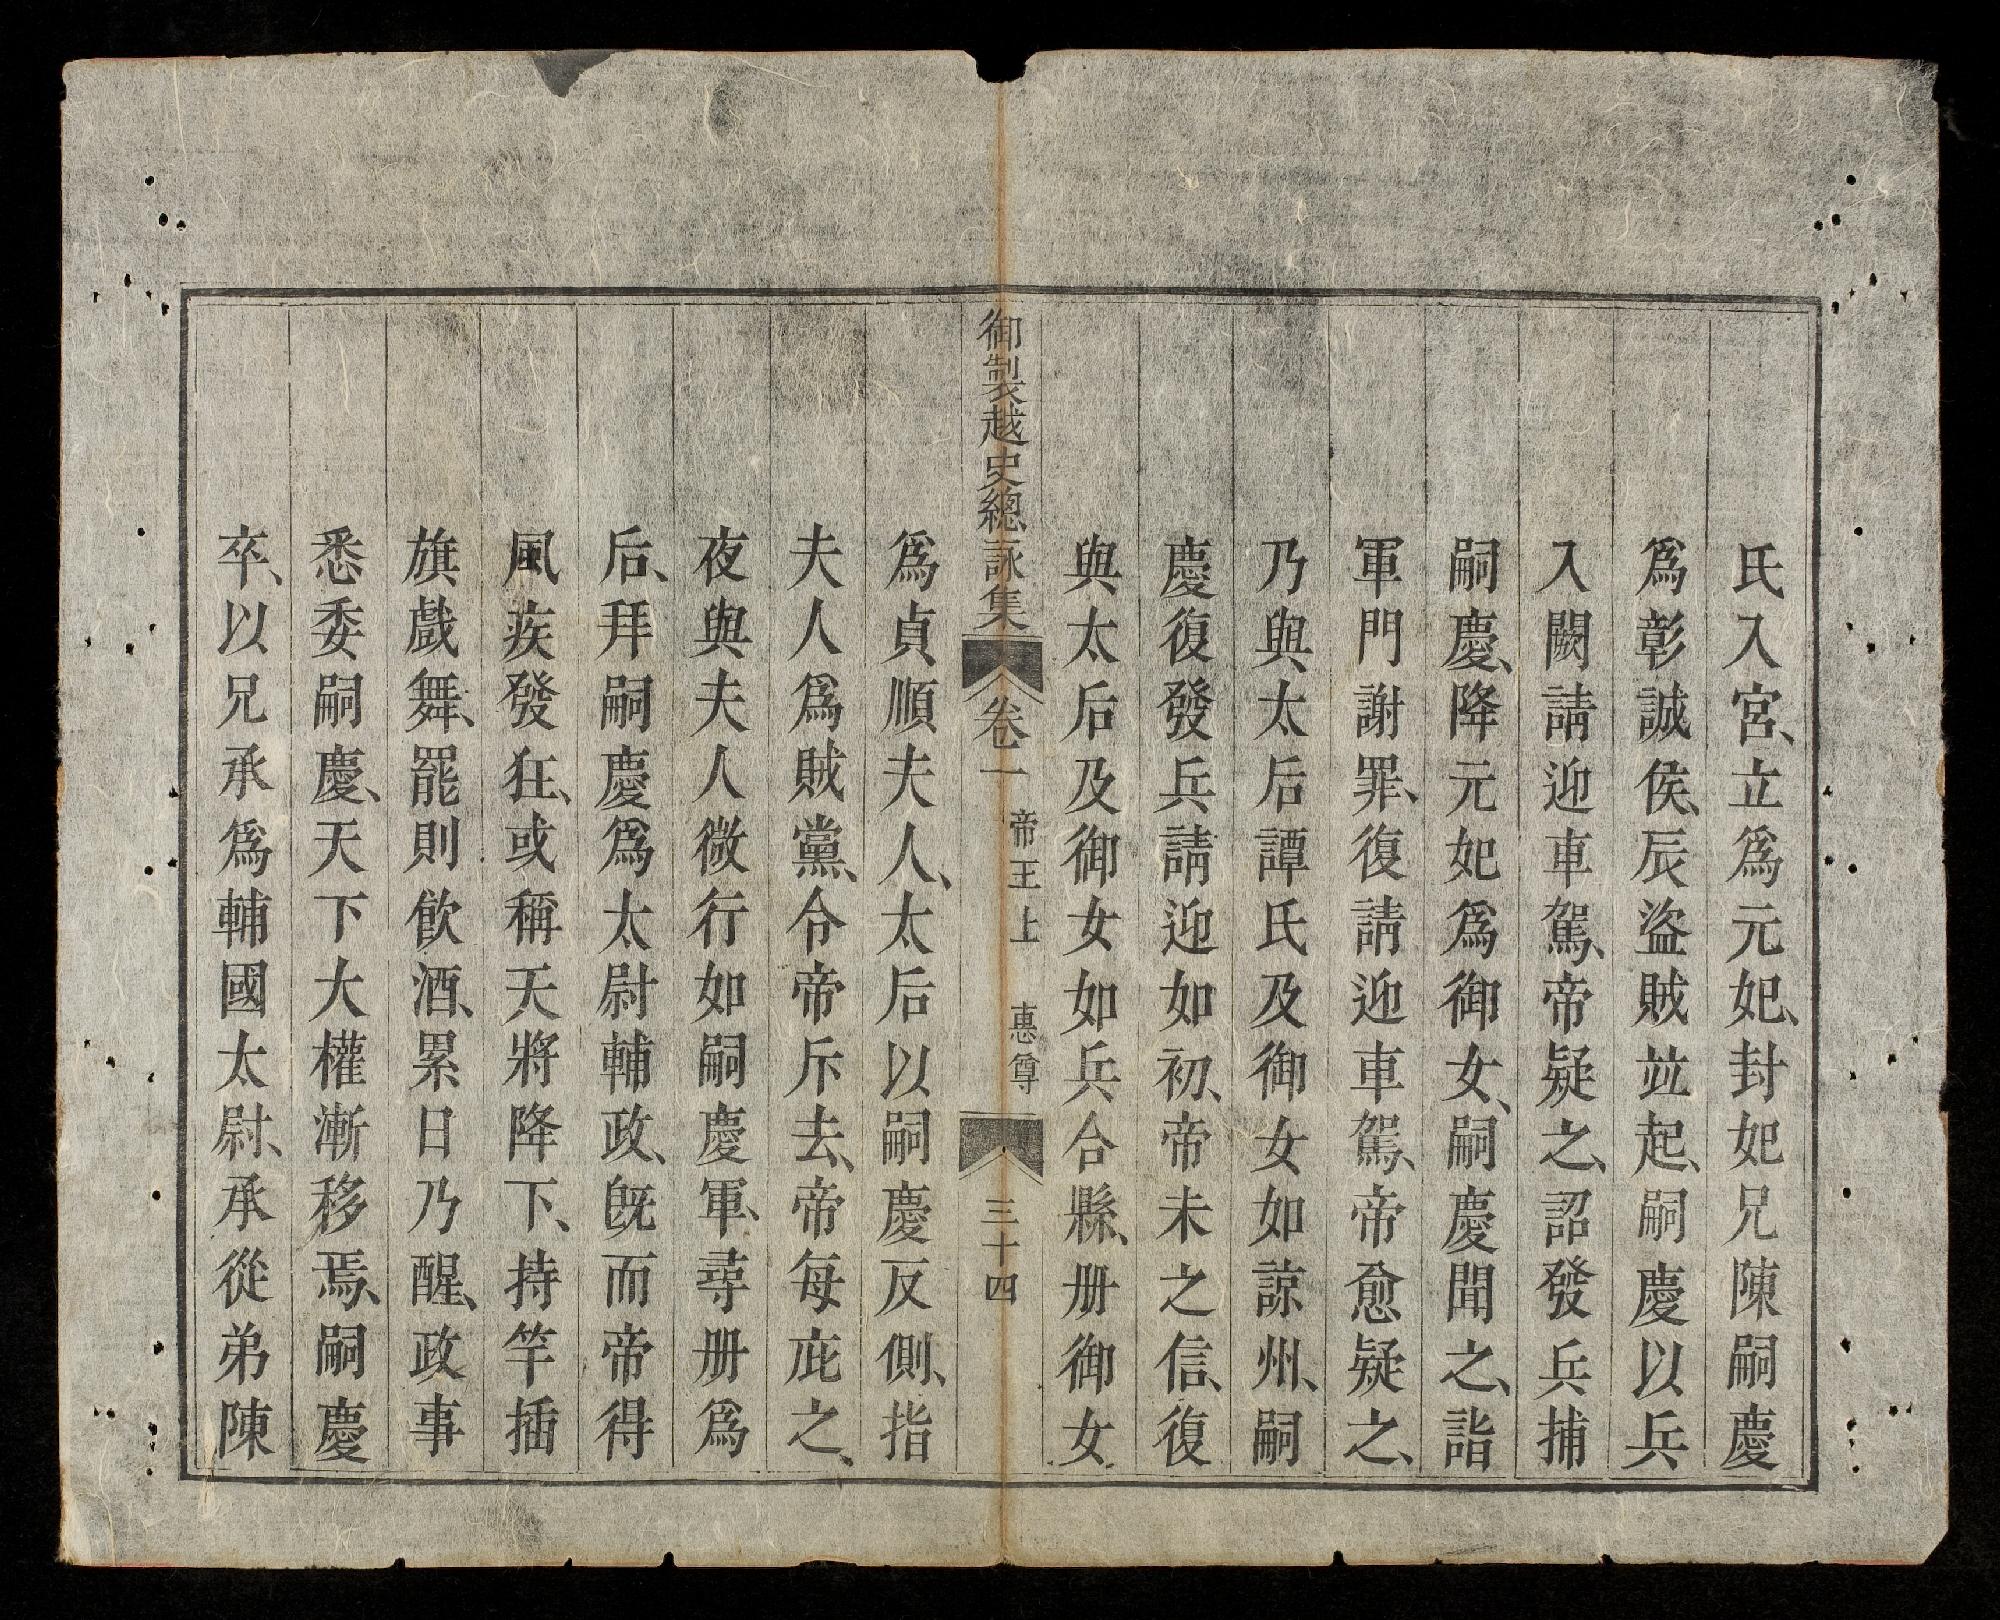 氏入宮、立爲元妃、封妃兄陳嗣慶
爲彰誠侯、辰盜賊竝起、嗣慶以兵
入闕請迎車駕、帝疑之、詔發兵捕
嗣慶、降元妃爲御女、嗣慶聞之、詣
軍門謝罪、復請迎車駕、帝愈疑之、
乃與太后譚氏及御女如諒州、嗣
慶復發兵請迎如初、帝未之信、復
與太后及御女如兵合縣、册御女
御製越史總詠集 卷一 帝王上 惠尊 三十四
爲貞順夫人、太后以嗣慶反側、指
夫人爲賊黨、令帝斥去、帝每庇之、
夜與夫人微行如嗣慶軍、尋册爲
后、拜嗣慶爲太尉輔政、旣而帝得
風疾發狂、或稱天將降下、持竿插
旗戲舞、罷則飮酒、累日乃醒、政事
悉委嗣慶、天下大權漸移焉、嗣慶
卒、以兄承爲輔國太尉、承從弟陳